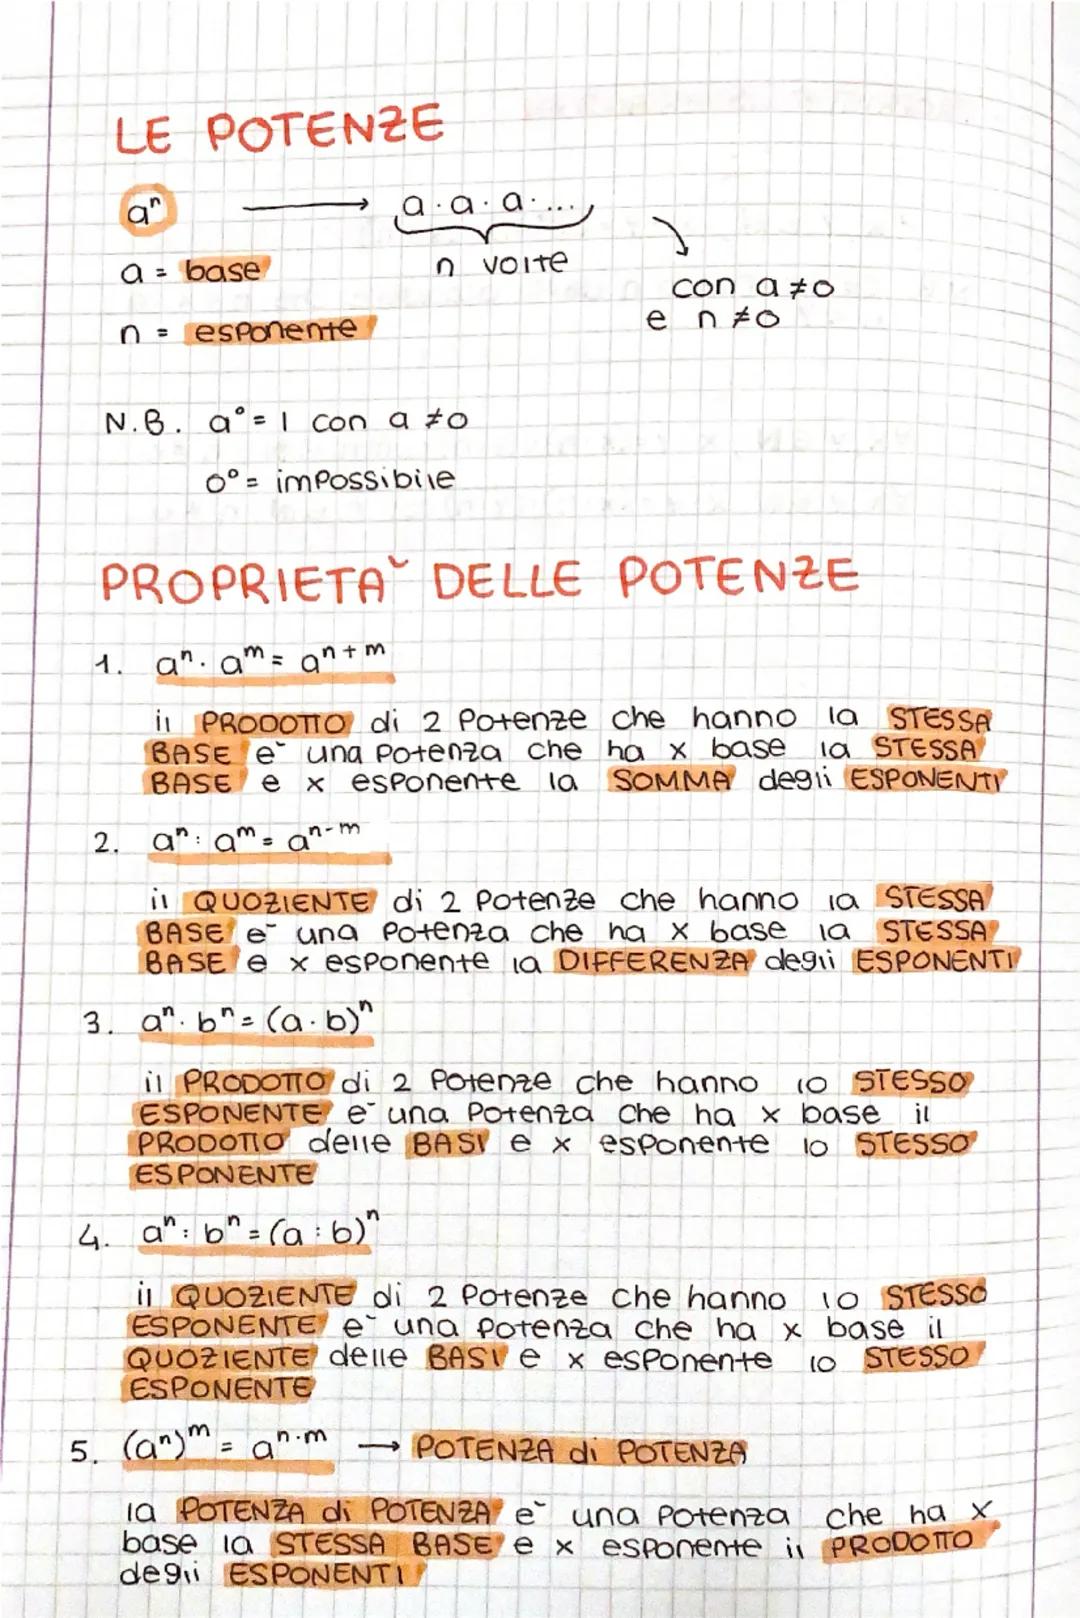 LE POTENZE
aⁿ → a · a · a · ...
a = base
n volte
con a ≠ 0
n = esponente
e n ≠ 0
N.B. a⁰ = 1 con a ≠ 0
0⁰ = impossibile
PROPRIETA` DELLE POTENZE
1. aⁿ · aᵐ = aⁿ⁺ᵐ
il PRODOTTO di 2 potenze che hanno la STESSA
BASE e` una potenza che ha x base la STESSA
BASE e x esponente la SOMMA degli ESPONENTI
2. aⁿ : aᵐ = aⁿ⁻ᵐ
il QUOZIENTE di 2 potenze che hanno la STESSA
BASE e` una potenza che ha x base la STESSA
BASE e x esponente la DIFFERENZA degli ESPONENTI
3. aⁿ · bⁿ = (a · b)ⁿ
il PRODOTTO di 2 potenze che hanno lo STESSO
ESPONENTE e` una potenza che ha x base il
PRODOTTO delle BASI e x esponente lo STESSO
ESPONENTE
4. aⁿ : bⁿ = (a : b)ⁿ
il QUOZIENTE di 2 potenze che hanno lo STESSO
ESPONENTE e` una potenza che ha x base il
QUOZIENTE delle BASI e x esponente lo STESSO
ESPONENTE
5. (aⁿ)ᵐ = aⁿ·ᵐ → POTENZA di POTENZA
la POTENZA di POTENZA e` una potenza che ha x
base la STESSA BASE e x esponente il PRODOTTO
degli ESPONENTI